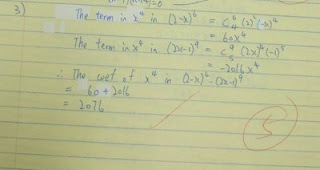 3)
The term in x⁴ in (2-x)⁶ = C⁶₄(2)²(-x)⁴
= 60x⁴
The term in x⁴ in (2x-1)⁹ = C⁹₅(2x)⁴(-1)⁵
= -2016x⁴
∴ The coef of x⁴ in (2-x)⁶-(2x-1)⁹
= 60 + 2016
= 2076
5